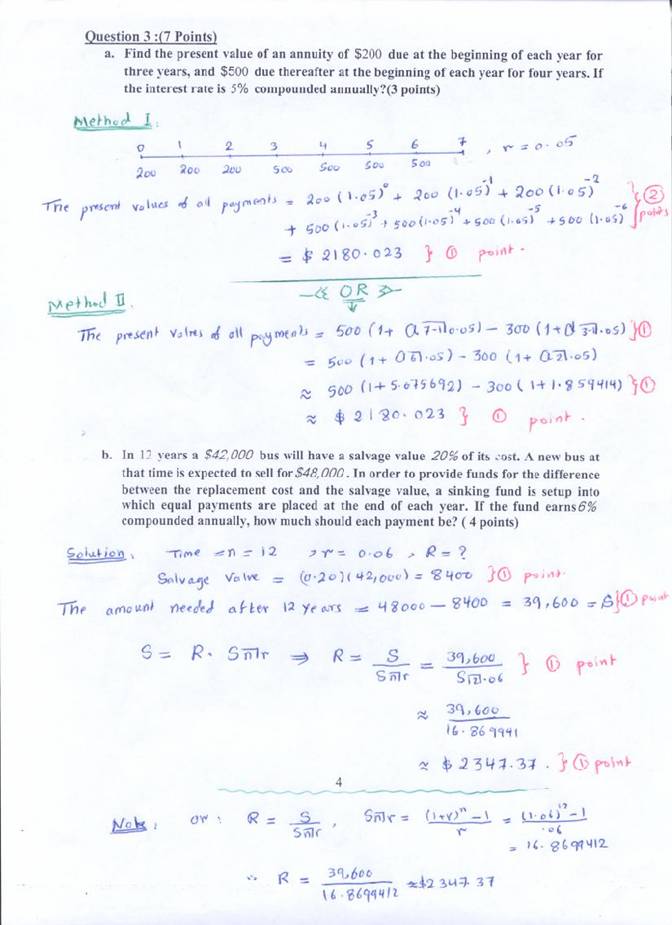 Question 3 :(7 Points)
a. Find the present value of an annuity of $200 due at the beginning of each year for
three years, and $500 due thereafter at the beginning of each year for four years. If
the interest rate is 5% compounded annually?(3 points)
Method I:
0 1 2 3 4 5 6 7 , r = 0.05
200 200 200 500 500 500 500
The present values of all payments = 200 (1.05)^0 + 200 (1.05)^-1 + 200 (1.05)^-2 } ② points
+ 500 (1.05)^-3 + 500 (1.05)^-4 + 500 (1.05)^-5 + 500 (1.05)^-6
= $ 2180.023 } ① point.
OR
Method II.
The present values of all payments = 500 (1 + a 7-1|0.05) - 300 (1 + a 3-1|.05) } ①
= 500 (1 + a 6|.05) - 300 (1 + a 2|.05)
≈ 500 (1 + 5.075692) - 300 (1 + 1.859414) } ①
≈ $ 2180.023 } ① point.
b. In 12 years a $42,000 bus will have a salvage value 20% of its cost. A new bus at
that time is expected to sell for $48,000. In order to provide funds for the difference
between the replacement cost and the salvage value, a sinking fund is setup into
which equal payments are placed at the end of each year. If the fund earns 6%
compounded annually, how much should each payment be? ( 4 points)
Solution. Time = n = 12 , r = 0.06 , R = ?
Salvage Value = (0.20)(42,000) = 8400 } ① point.
The amount needed after 12 years = 48000 - 8400 = 39,600 = S } ① point
S = R . S n|r ⇒ R = S / S n|r = 39,600 / S 12|.06 } ① point
≈ 39,600 / 16.869941
≈ $ 2347.37 . } ① point
4
Note: or : R = S / S n|r , S n|r = (1+r)^n - 1 / r = (1.06)^12 - 1 / .06
= 16.8699412
∴ R = 39,600 / 16.8699412 ≈ $2347.37